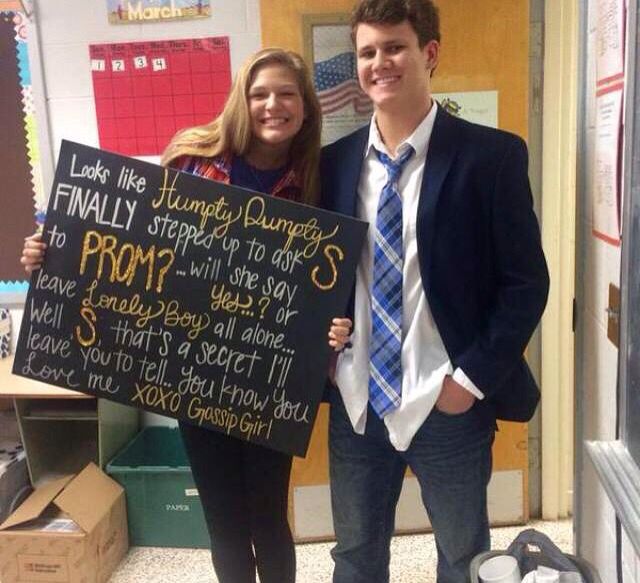 March
1 2 3 4
Looks like Humpty Dumpty's
FINALLY stepped up to ask S
to PROM? ...will she say
yes..? or
leave Lonely Boy all alone...
Well S, that's a secret I'll
leave you to tell.. you know you
Love me XOXO Gossip Girl
PAPER